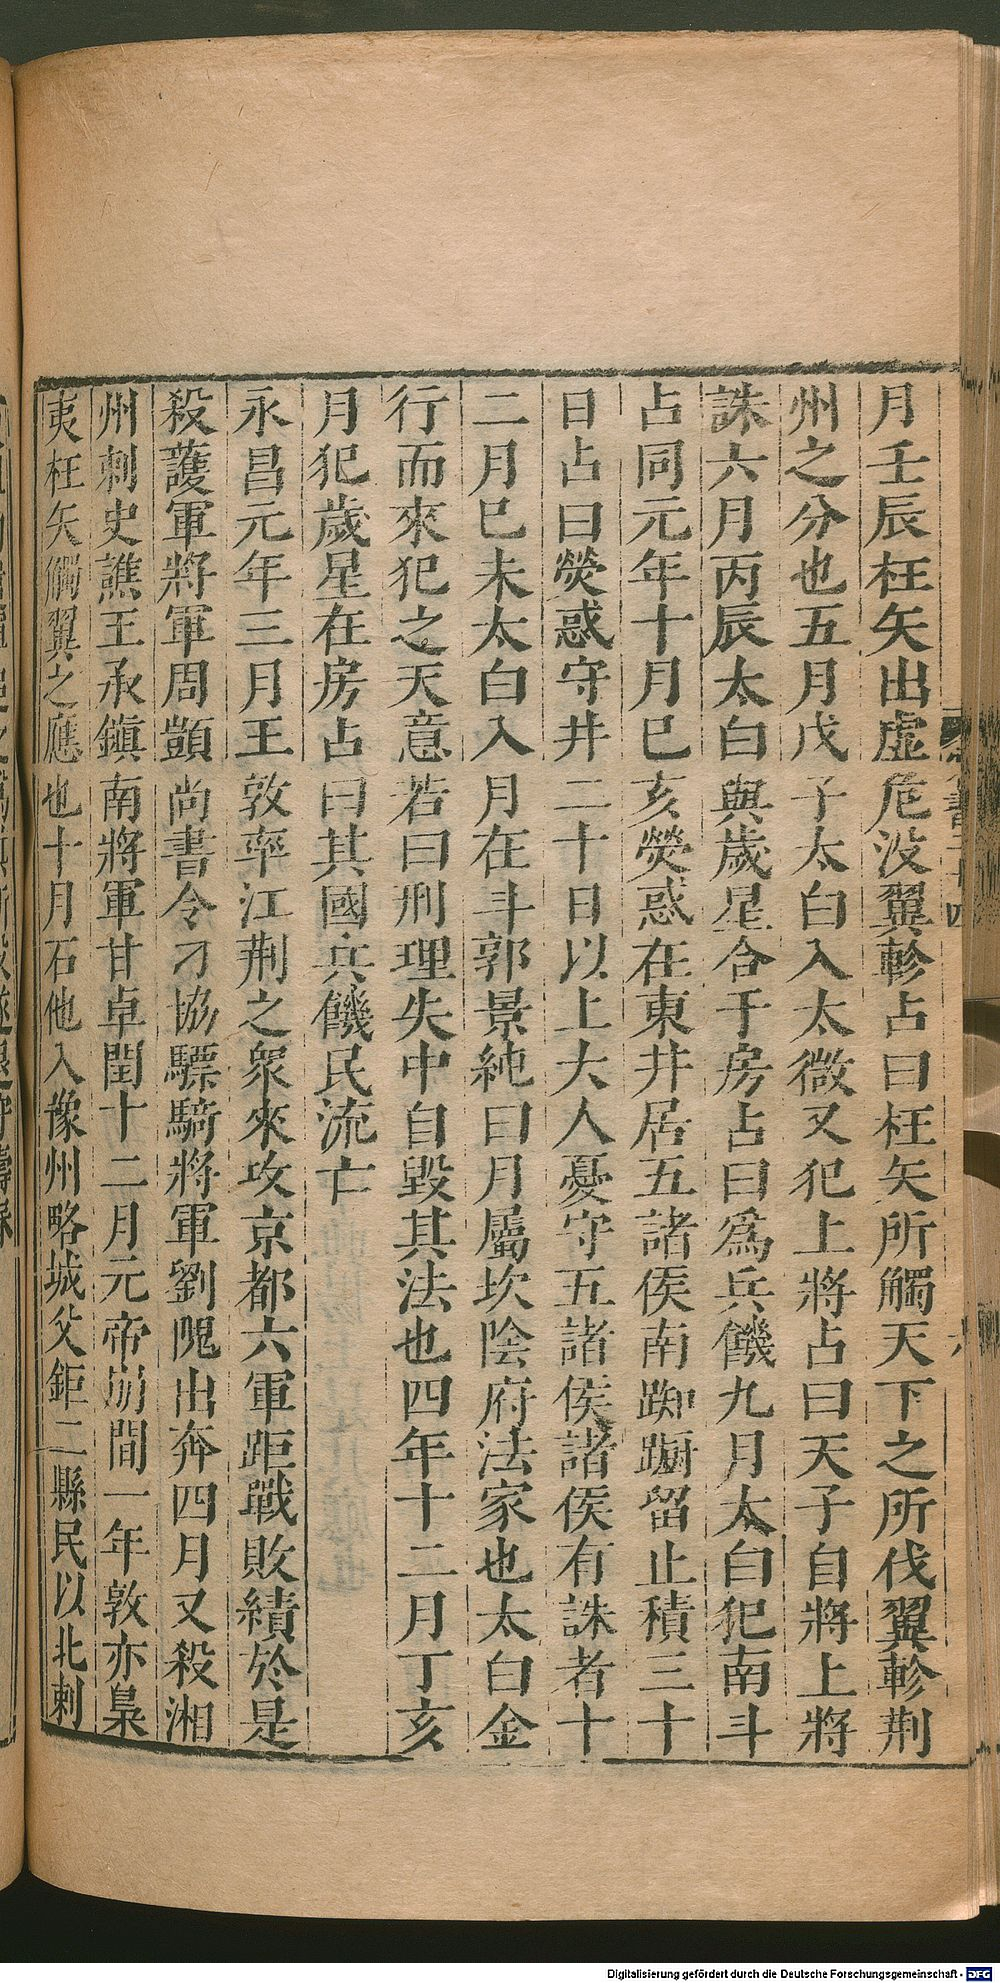 月壬辰枉矢出虛危没翼軫占曰枉矢所觸天下之所伐翼軫荆
州之分也五月戊子太白入太微又犯上將占曰天子自將上將
誅六月丙辰太白與歲星合于房占曰爲兵饑九月太白犯南斗
占同元年十月巳亥熒惑在東井居五諸侯南踟蹰留止積三十
日占曰熒惑守井二十日以上大人憂守五諸侯諸侯有誅者十
二月巳未太白入月在斗郭景純曰月屬坎陰府法家也太白金
行而來犯之天意若曰刑理失中自毀其法也四年十二月丁亥
月犯歲星在房占曰其國兵饑民流亡
永昌元年三月王敦率江荆之衆來攻京都六軍距戰敗績於是
殺護軍將軍周顗尚書令刁協驃騎將軍劉隗出奔四月又殺湘
州刺史譙王承鎮南將軍甘卓閏十二月元帝崩間一年敦亦梟
夷枉矢觸翼之應也十月石他入豫州略城父銍二縣民以北刺
Digitalisierung gefördert durch die Deutsche Forschungsgemeinschaft - DFG